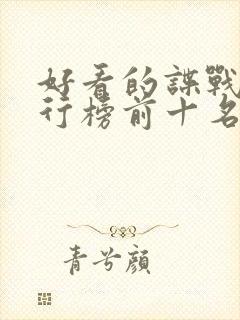 好看的諜戰
行榜前十名
青兮顏